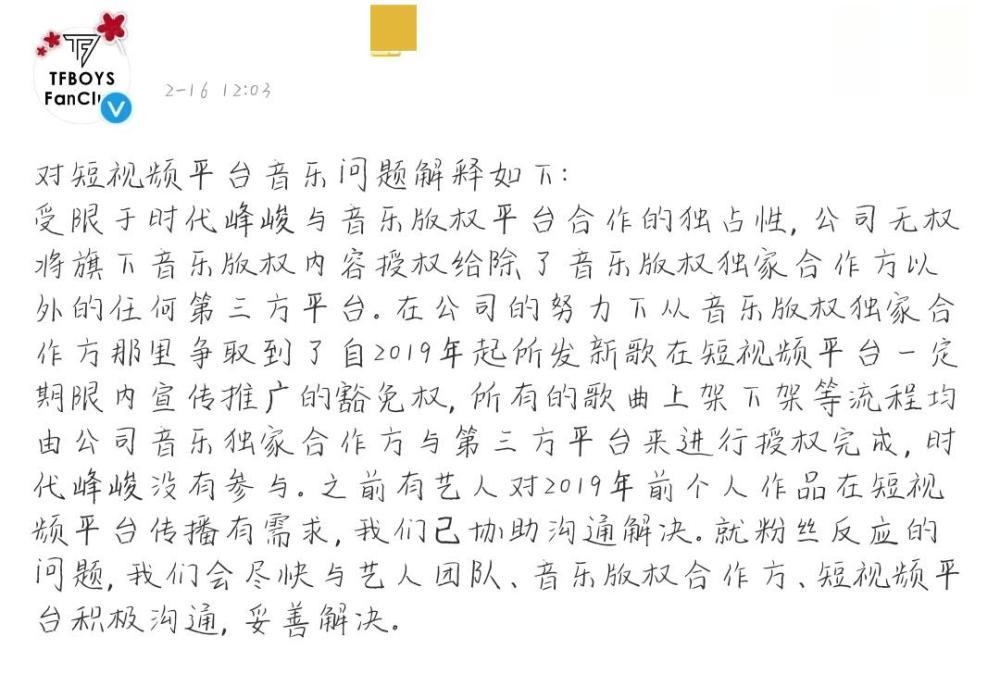 TFBOYS
FanClu
2-16 12:03
对短视频平台音乐问题解释如下:
受限于时代峰峻与音乐版权平台合作的独占性,公司无权
将旗下音乐版权内容授权给除了音乐版权独家合作方以
外的任何第三方平台。在公司的努力下从音乐版权独家合
作方那里争取到了自2019年起所发新歌在短视频平台一定
期限内宣传推广的豁免权,所有的歌曲上架下架等流程均
由公司音乐独家合作方与第三方平台来进行授权完成,时
代峰峻没有参与。之前有艺人对2019年前个人作品在短视
频平台传播有需求,我们已协助沟通解决。就粉丝反应的
问题,我们会尽快与艺人团队、音乐版权合作方、短视频平
台积极沟通,妥善解决。